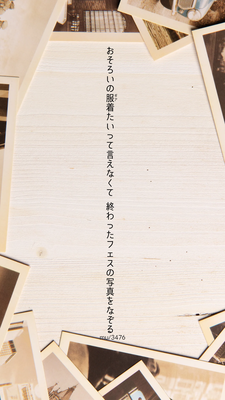 おそろいの服着たいって言えなくて 終わったフェスの写真をなぞる
mu/3476